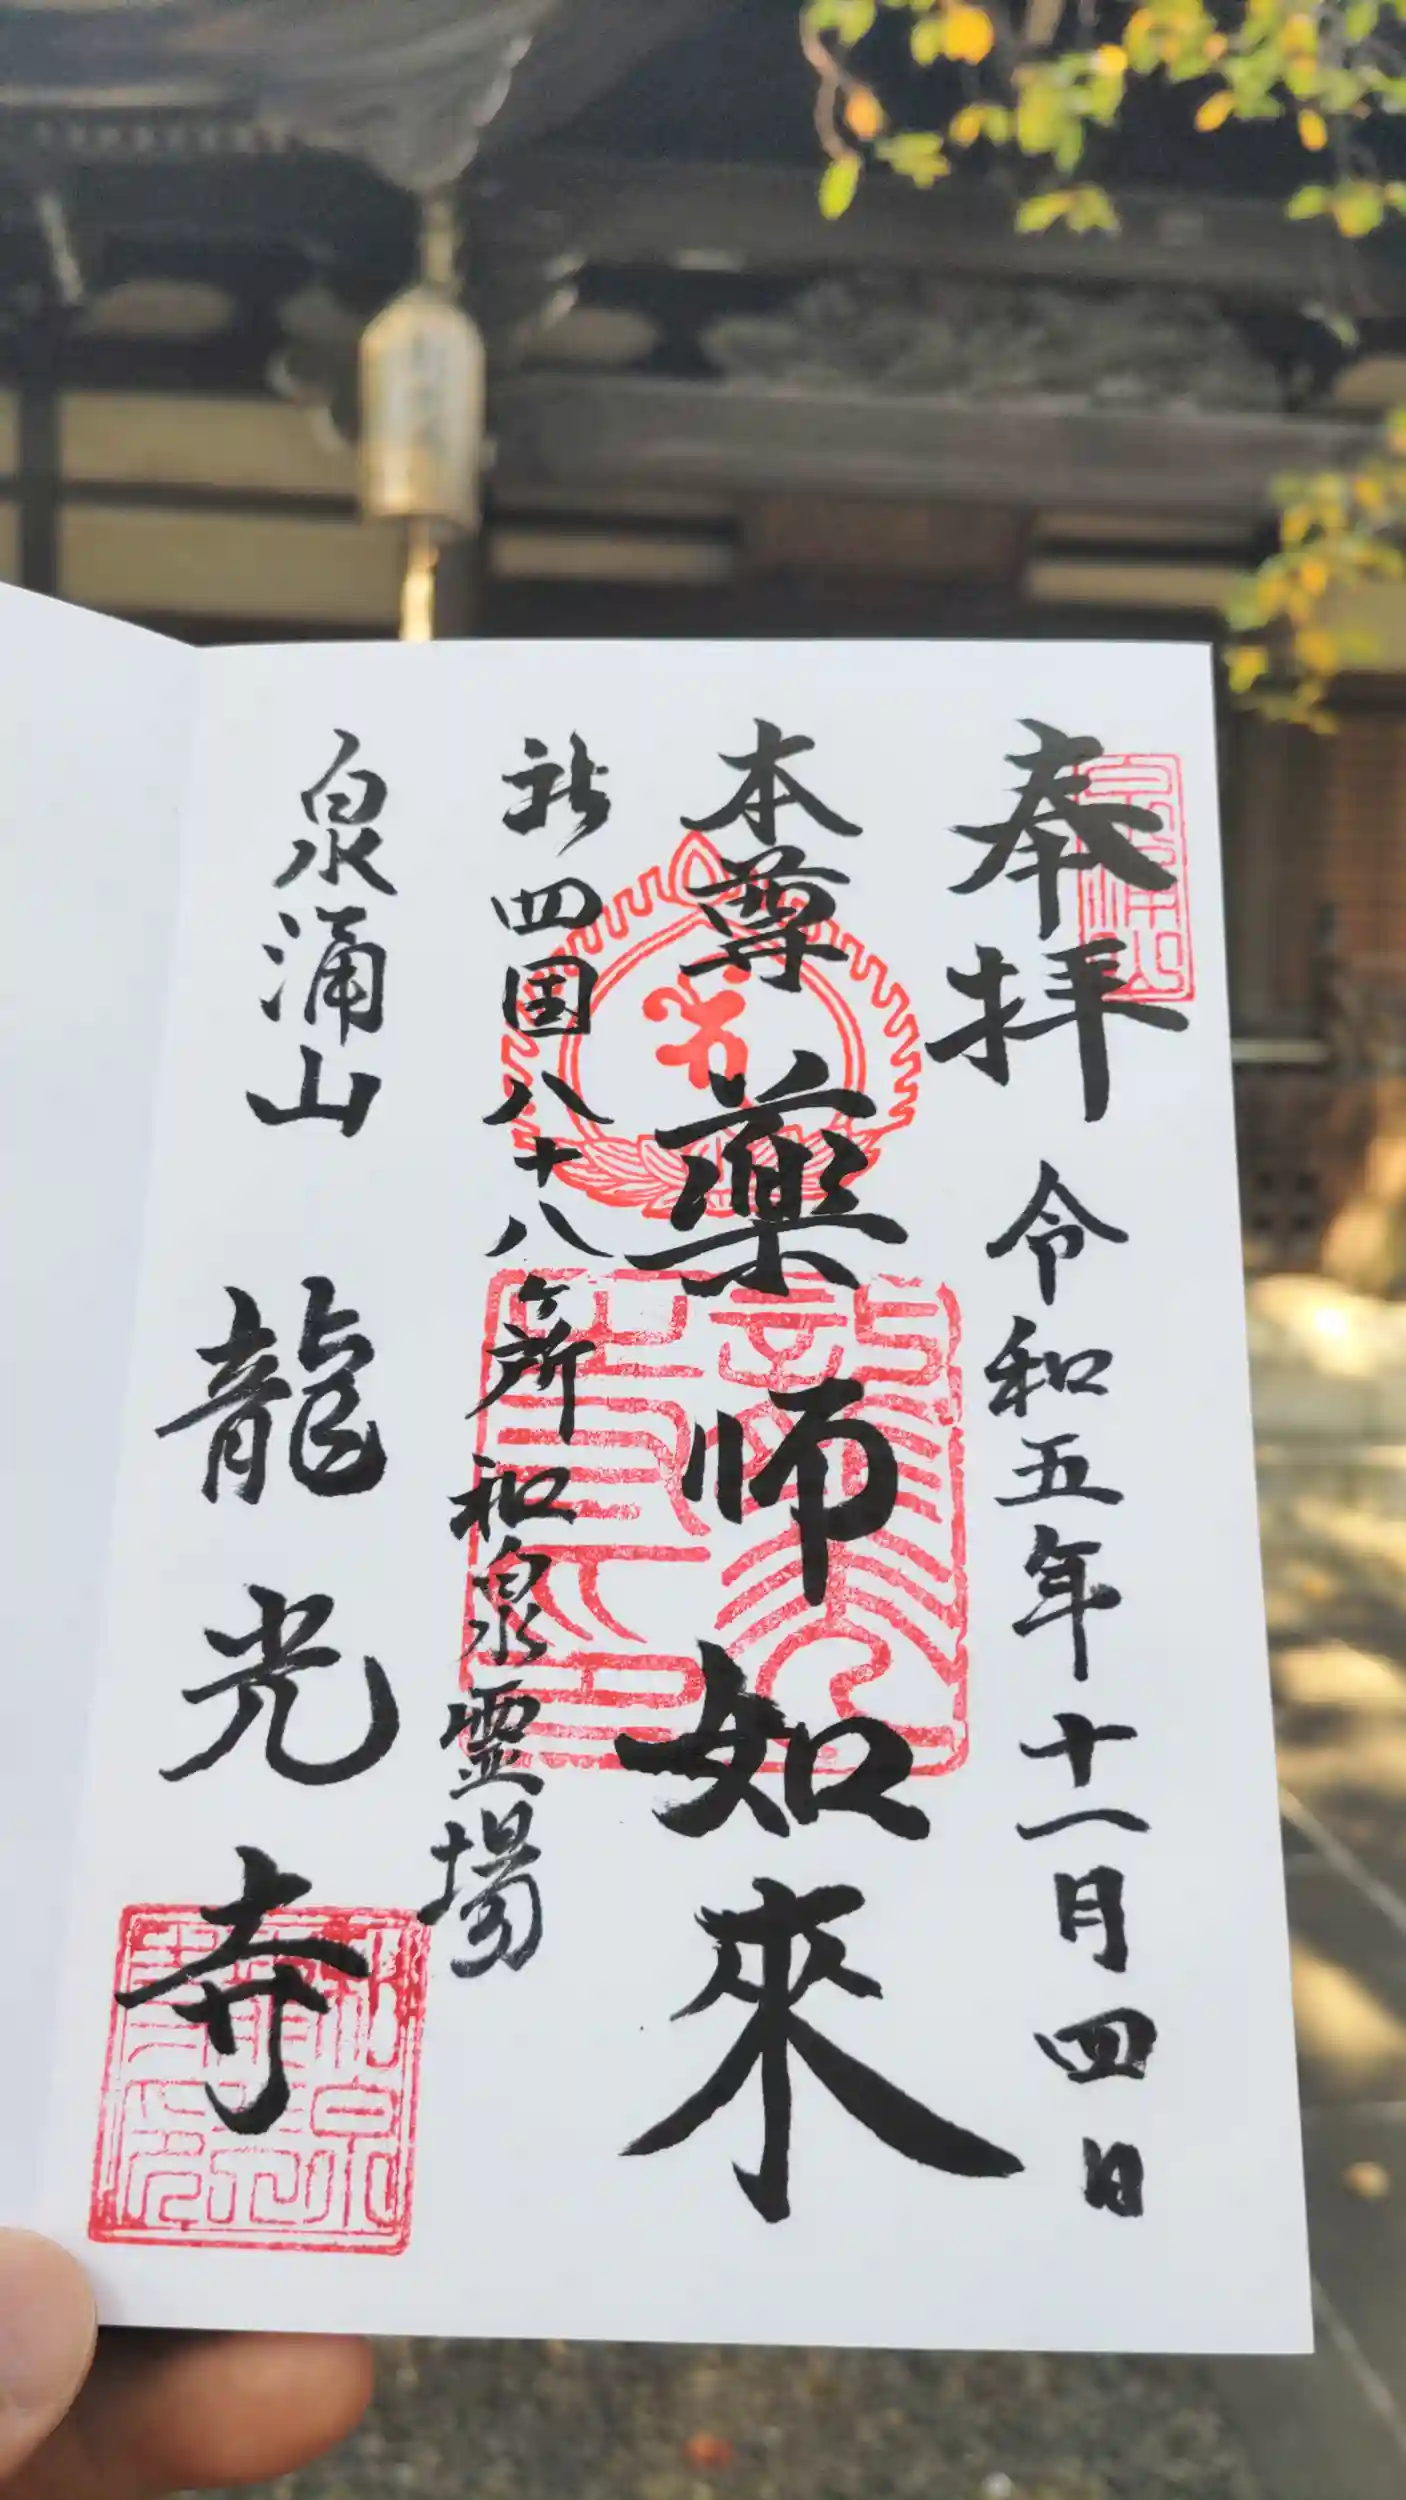 奉拝 令和五年十一月四日
本尊 藥師如來
新四国八十八ヶ所 和泉霊場
泉涌山 龍光寺